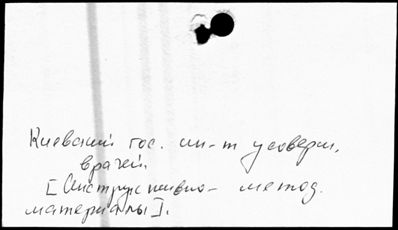 Киевский гос. ин-т усоверш.
врачей
[Инструктивно- метод.
материалы].